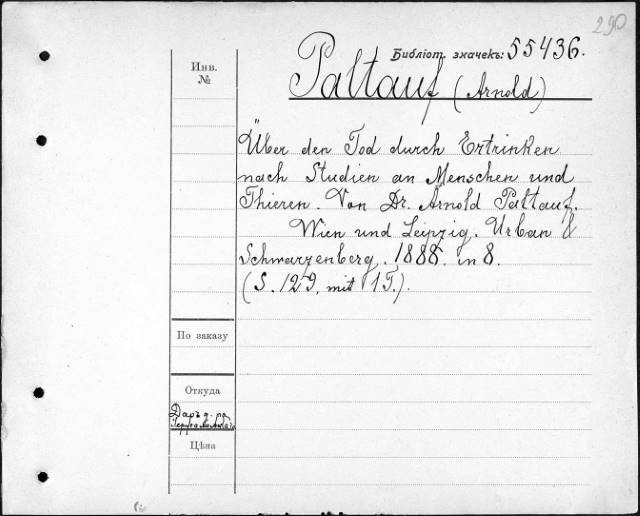 290
Библіот. значекъ: 55436.
Инв.
№
Paltauf (Arnold)
Über den Tod durch Ertrinken
nach Studien an Menschen und
Thieren. Von Dr. Arnold Paltauf.
Wien und Leipzig. Urban &
Schwarzenberg. 1888. in 8.
(S. 129, mit 1 T.).
По заказу
Откуда
Даръ д-ра
Цѣна